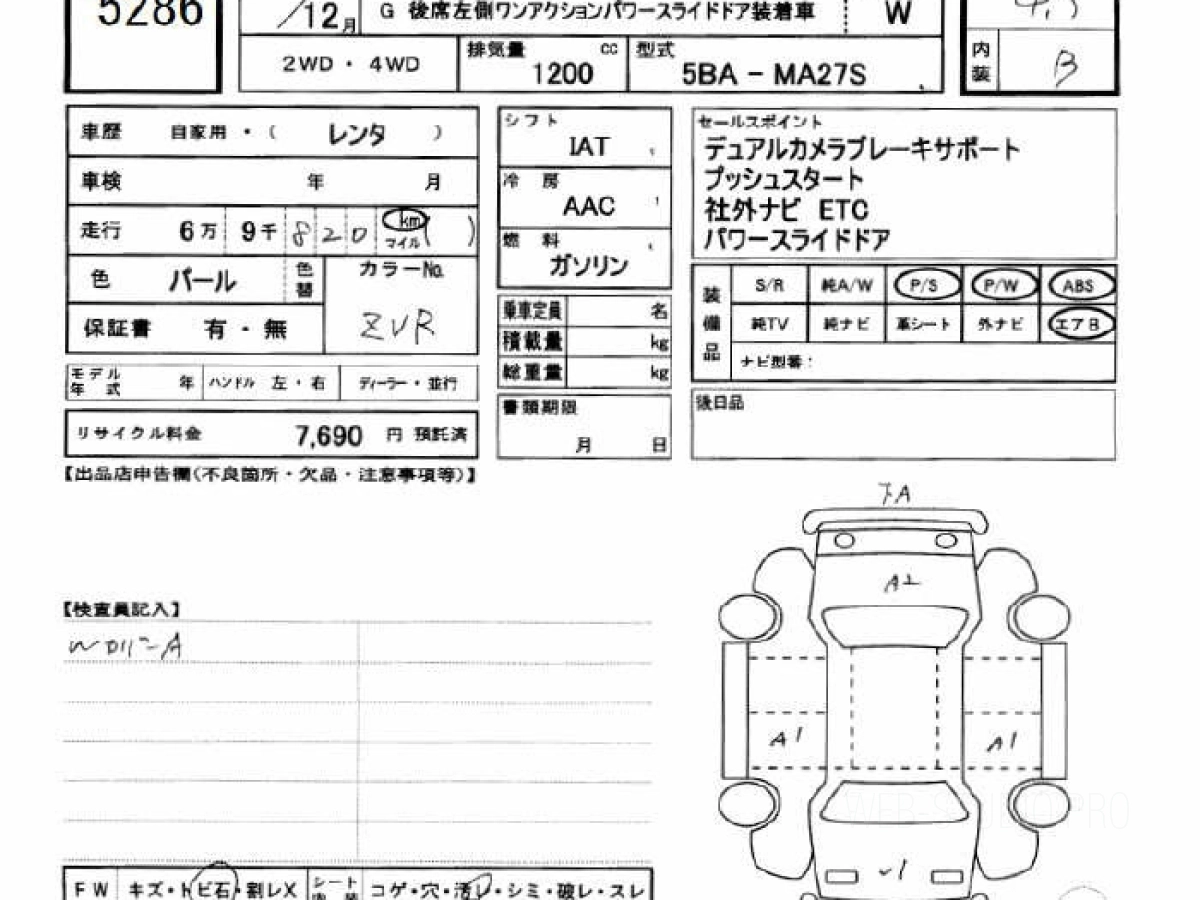 5286
/12月 G 後席左側ワンアクションパワースライドドア装着車 W
2WD ・ 4WD 排気量 cc 1200 型式 5BA - MA27S
内装 B
車歴 自家用 ・ ( レンタ )
車検 年 月
走行 6万 9千 820 km マイル ( )
色 パール 色替 カラーNo. ZVR
保証書 有 ・ 無
モデル年式 年 ハンドル 左 ・ 右 ディーラー ・ 並行
リサイクル料金 7,690 円 預託済
シフト IAT
冷房 AAC
燃料 ガソリン
乗車定員 名
積載量 kg
総重量 kg
書類期限 月 日
セールスポイント
デュアルカメラブレーキサポート
プッシュスタート
社外ナビ ETC
パワースライドドア
装備品
S/R 純A/W P/S P/W ABS
純TV 純ナビ 革シート 外ナビ エアB
ナビ型番：
後日品
【出品店申告欄(不良箇所・欠品・注意事項等)】
【検査員記入】
A2
A1 A1
WEB-STUDIO PRO
FW キズ・トビ石・割レX シート内装 コゲ・穴・汚レ・シミ・破レ・スレ